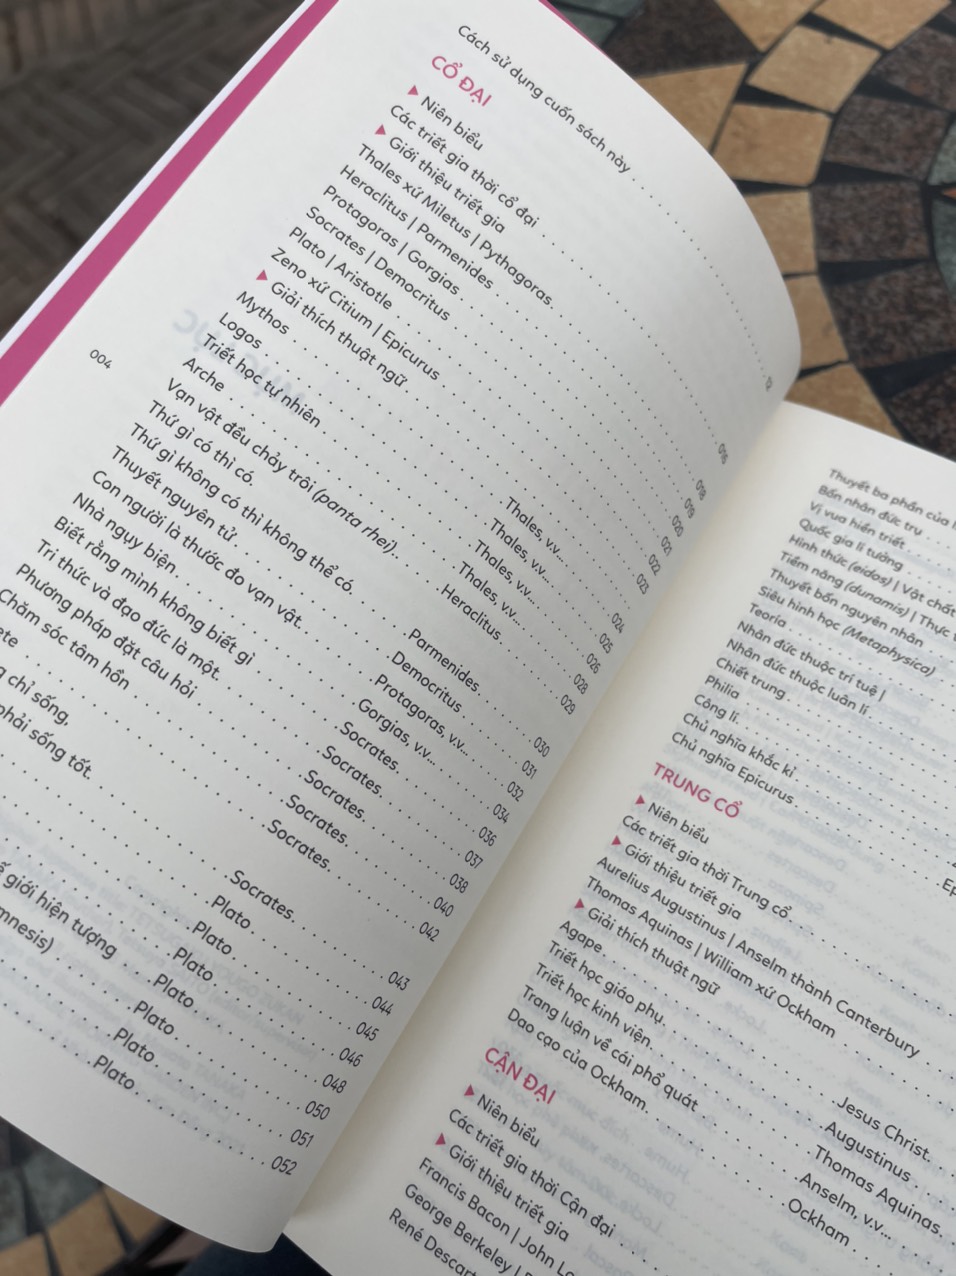 Cách sử dụng cuốn sách này . . . . 12
CỔ ĐẠI
▶ Niên biểu
Các triết gia thời cổ đại . . . . 016
▶ Giới thiệu triết gia
Thales xứ Miletus | Pythagoras . . . . 018
Heraclitus | Parmenides . . . . 019
Protagoras | Gorgias . . . . 020
Socrates | Democritus . . . . 021
Plato | Aristotle . . . . 022
Zeno xứ Citium | Epicurus . . . . 023
▶ Giải thích thuật ngữ
Mythos . . . . Thales, v.v... . . . . 024
Logos . . . . Thales, v.v... . . . . 025
Triết học tự nhiên . . . . Thales, v.v... . . . . 026
Arche . . . . Thales, v.v... . . . . 028
Vạn vật đều chảy trôi (panta rhei). . . . Heraclitus . . . . 029
Thứ gì có thì có.
Thứ gì không có thì không thể có. . . . Parmenides. . . . 030
Thuyết nguyên tử . . . . Democritus . . . . 031
Con người là thước đo vạn vật. . . . Protagoras, v.v... . . . . 032
Nhà ngụy biện. . . . Gorgias, v.v... . . . . 034
Biết rằng mình không biết gì . . . . Socrates. . . . 036
Tri thức và đạo đức là một. . . . Socrates. . . . 037
Phương pháp đặt câu hỏi . . . . Socrates. . . . 038
Chăm sóc tâm hồn . . . . Socrates. . . . 040
ete . . . . Socrates. . . . 042
chỉ sống,
phải sống tốt. . . . Socrates. . . . 043
Plato. . . . 044
Plato . . . . 045
Plato . . . . 046
giới hiện tượng . . . . Plato . . . . 048
mnesis) . . . . Plato . . . . 050
Plato . . . . 051
Plato . . . . 052
004
Thuyết ba phần của
Bốn nhân đức trụ
Vị vua hiền triết
Quốc gia lí tưởng
Hình thức (eidos) | Vật chất
Tiềm năng (dunamis) | Thực
Thuyết bốn nguyên nhân
Siêu hình học (Metaphysica)
Teoria
Nhân đức thuộc trí tuệ |
Nhân đức thuộc luân lí
Chiết trung
Philia
Công lí.
Chủ nghĩa khắc kỉ
Chủ nghĩa Epicurus. . . . Ep
TRUNG CỔ
▶ Niên biểu
Các triết gia thời Trung cổ.
▶ Giới thiệu triết gia
Aurelius Augustinus | Anselm thành Canterbury
Thomas Aquinas | William xứ Ockham
▶ Giải thích thuật ngữ
Agape. . . . Jesus Christ.
Triết học giáo phụ. . . . Augustinus
Triết học kinh viện. . . . Thomas Aquinas.
Tranh luận về cái phổ quát . . . . Anselm, v.v...
Dao cạo của Ockham. . . . Ockham
CẬN ĐẠI
▶ Niên biểu
Các triết gia thời Cận đại
▶ Giới thiệu triết gia
Francis Bacon | John Lo
George Berkeley |
René Descart